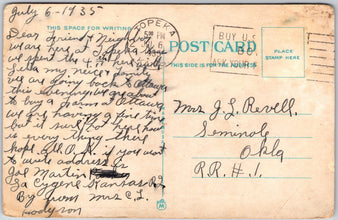 July 6-1935
THIS SPACE FOR WRITING
TOPEKA
PM
6
BUY U.S.
ASK YOUR
POST CARD
THIS SIDE IS FOR THE ADDRESS
PLACE
STAMP HERE
Dear Friend & Neighbor
we are here at Topeka
we spent the 4th here
niece & family
we are going back to Ottawa
this evening we are
to buy a farm at Ottawa
we are having a fine time
but it sure
is every thing there
hope all O.K. if you want
to write address is
Joe Martin
La Cygne Kansas R 2
By from Mrs C. L.
Mrs J. L. Revell.
Seminole
Okla
R.R. #.1.